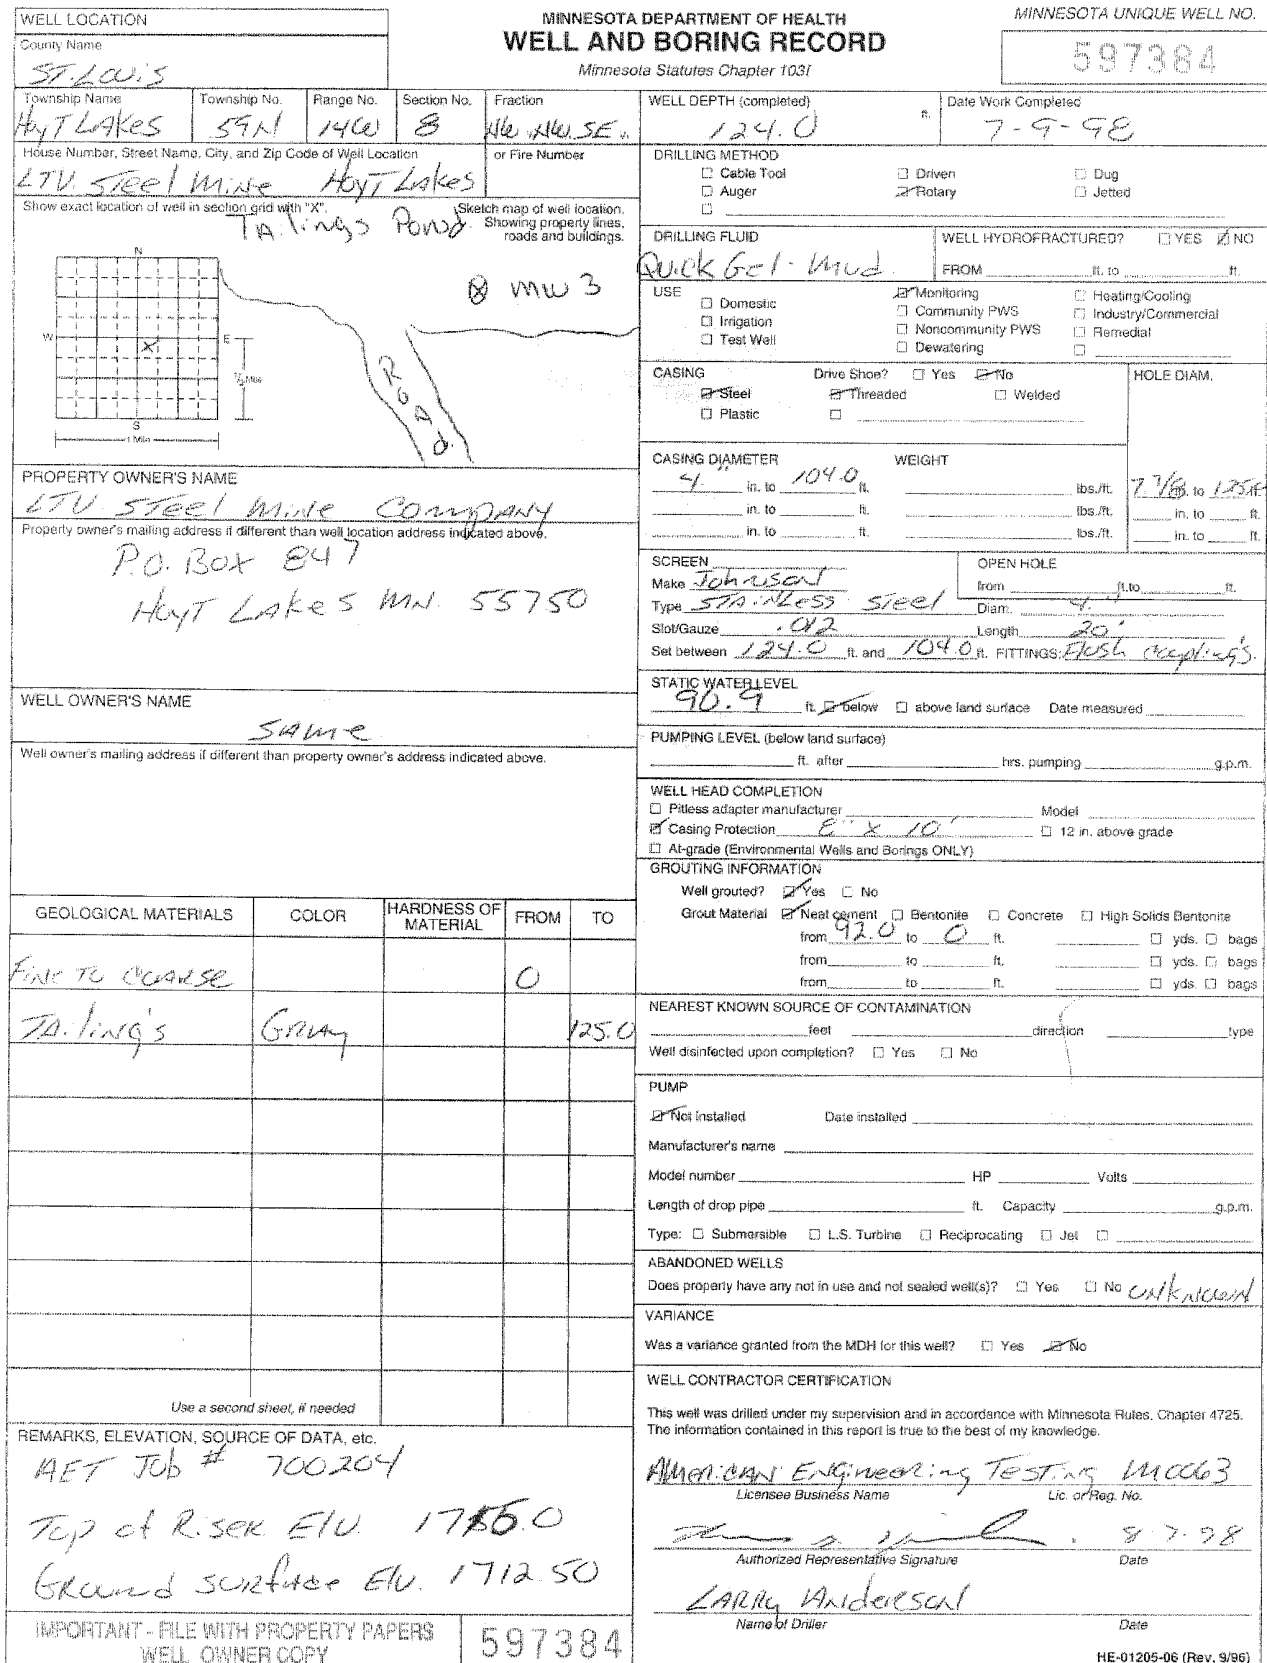 WELL LOCATION
MINNESOTA DEPARTMENT OF HEALTH
WELL AND BORING RECORD
Minnesota Statutes Chapter 103I
MINNESOTA UNIQUE WELL NO.
597384
County Name
ST. LOUIS
Township Name Township No. Range No. Section No. Fraction
HOYT LAKES 59N 14W 8 NW NW SE
WELL DEPTH (completed) ft. Date Work Completed
124.0 7-9-98
House Number, Street Name, City, and Zip Code of Well Location or Fire Number
LTV. Steel Mine Hoyt Lakes
Show exact location of well in section grid with "X".
Sketch map of well location.
Showing property lines,
roads and buildings.
Tailings Pond.
N
W
E
S
1/2 Mile
1 Mile
X
MW 3
Road
PROPERTY OWNER'S NAME
LTV STEEL MINE COMPANY
Property owner's mailing address if different than well location address indicated above.
P.O. BOX 847
HOYT LAKES MN. 55750
WELL OWNER'S NAME
SAME
Well owner's mailing address if different than property owner's address indicated above.
GEOLOGICAL MATERIALS COLOR HARDNESS OF MATERIAL FROM TO
FINE TO COARSE 0
TAiling's GRAY 125.0
Use a second sheet, if needed
REMARKS, ELEVATION, SOURCE OF DATA, etc.
AET Job # 700204
Top of Riser Elv.
Ground surface Elv. 1712.50
IMPORTANT - FILE WITH PROPERTY PAPERS
WELL OWNER COPY
597384
DRILLING METHOD
Cable Tool Driven Dug
Auger Rotary Jetted
DRILLING FLUID
Quick Gel-Mud
WELL HYDROFRACTURED? YES NO
FROM ft. to ft.
USE
Domestic Monitoring Heating/Cooling
Irrigation Community PWS Industry/Commercial
Test Well Noncommunity PWS Remedial
Dewatering
CASING Drive Shoe? Yes No
Steel Threaded Welded
Plastic
HOLE DIAM.
CASING DIAMETER WEIGHT
4" in. to 104.0 ft. lbs./ft. 7 7/8 in. to 125 ft.
in. to ft. lbs./ft. in. to ft.
in. to ft. lbs./ft. in. to ft.
SCREEN
Make Johnson
Type STAINLESS Steel
Slot/Gauze .012
Set between 124.0 ft. and 104.0 ft. FITTINGS: Flush Coupling's.
OPEN HOLE
from ft. to ft.
Diam. 4"
Length 20'
STATIC WATER LEVEL
90.9 ft. below above land surface Date measured
PUMPING LEVEL (below land surface)
ft. after hrs. pumping g.p.m.
WELL HEAD COMPLETION
Pitless adapter manufacturer Model
Casing Protection 8" X 10' 12 in. above grade
At-grade (Environmental Wells and Borings ONLY)
GROUTING INFORMATION
Well grouted? Yes No
Grout Material Neat cement Bentonite Concrete High Solids Bentonite
from 92.0 to 0 ft. yds. bags
from to ft. yds. bags
from to ft. yds. bags
NEAREST KNOWN SOURCE OF CONTAMINATION
feet direction type
Well disinfected upon completion? Yes No
PUMP
Not installed Date installed
Manufacturer's name
Model number HP Volts
Length of drop pipe ft. Capacity g.p.m.
Type: Submersible L.S. Turbine Reciprocating Jet
ABANDONED WELLS
Does property have any not in use and not sealed well(s)? Yes No UNKNOWN
VARIANCE
Was a variance granted from the MDH for this well? Yes No
WELL CONTRACTOR CERTIFICATION
This well was drilled under my supervision and in accordance with Minnesota Rules, Chapter 4725.
The information contained in this report is true to the best of my knowledge.
AMERICAN ENGINEERING TESTING M0063
Licensee Business Name Lic. or Reg. No.
8-7-98
Authorized Representative Signature Date
LARRY ANDERSON
Name of Driller Date
HE-01205-06 (Rev. 9/96)